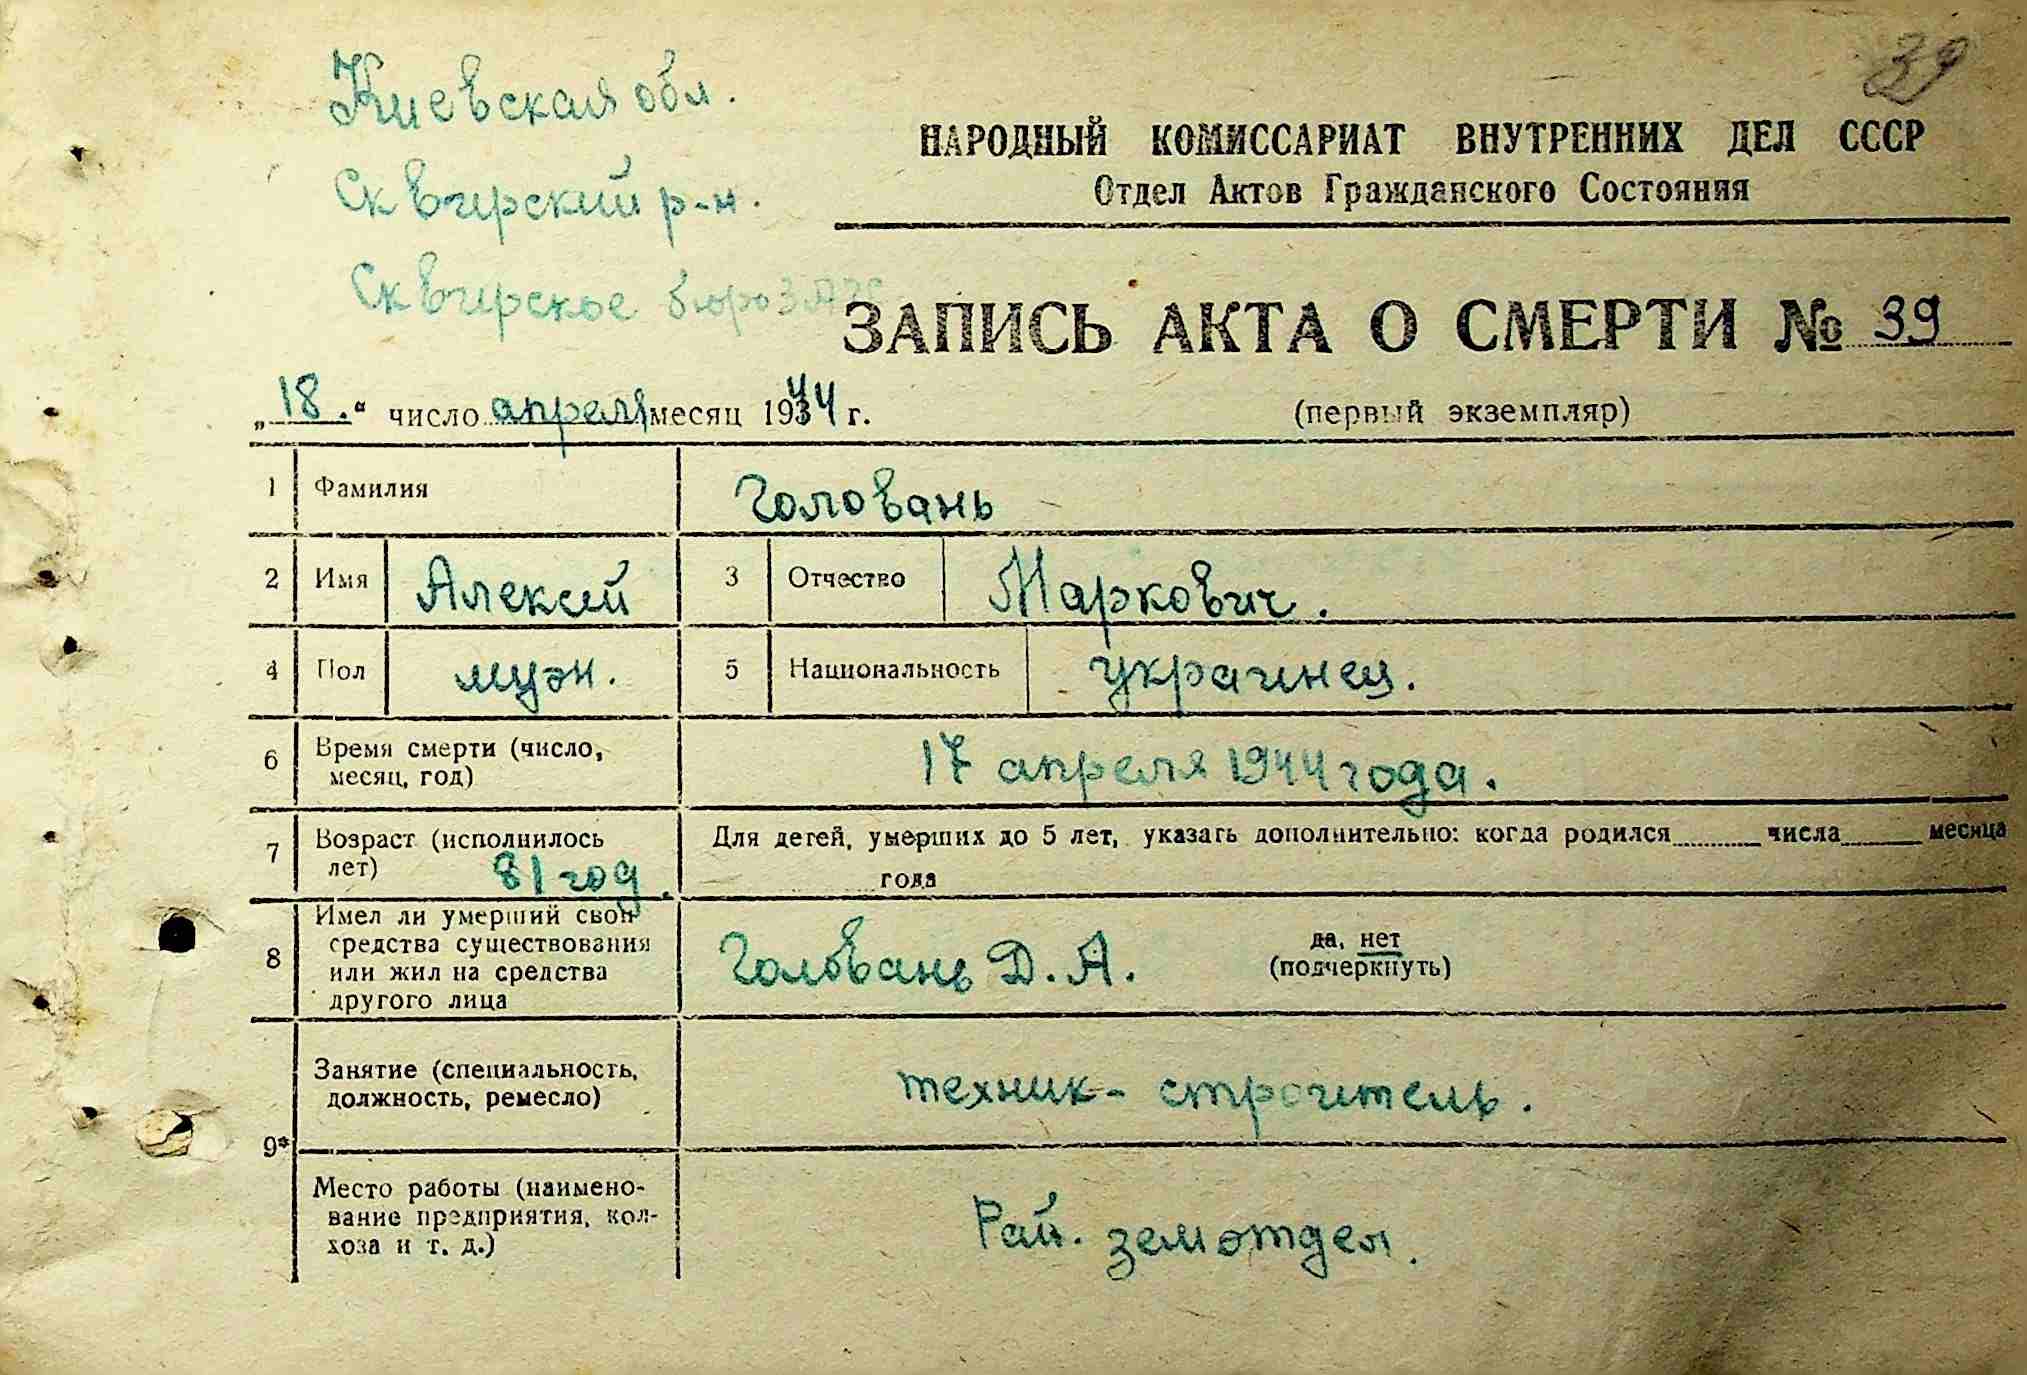 39
Киевская обл.
Сквирский р-н.
Сквирское бюро ЗАГС
НАРОДНЫЙ КОМИССАРИАТ ВНУТРЕННИХ ДЕЛ СССР
Отдел Актов Гражданского Состояния
ЗАПИСЬ АКТА О СМЕРТИ № 39
„18.“ число апреля месяц 1944 г.
(первый экземпляр)
1 Фамилия Головань
2 Имя Алексей 3 Отчество Маркович.
4 Пол муж. 5 Национальность украинец.
6 Время смерти (число,
месяц, год) 17 апреля 1944 года.
7 Возраст (исполнилось
лет) 81 год.
Для детей, умерших до 5 лет, указать дополнительно: когда родился числа месяца
года
8 Имел ли умерший свои
средства существования
или жил на средства
другого лица
Головань Д. А.
да, нет
(подчеркнуть)
9*
Занятие (специальность,
должность, ремесло) техник - строитель.
Место работы (наимено-
вание предприятия, кол-
хоза и т. д.) Рай. земотдел.